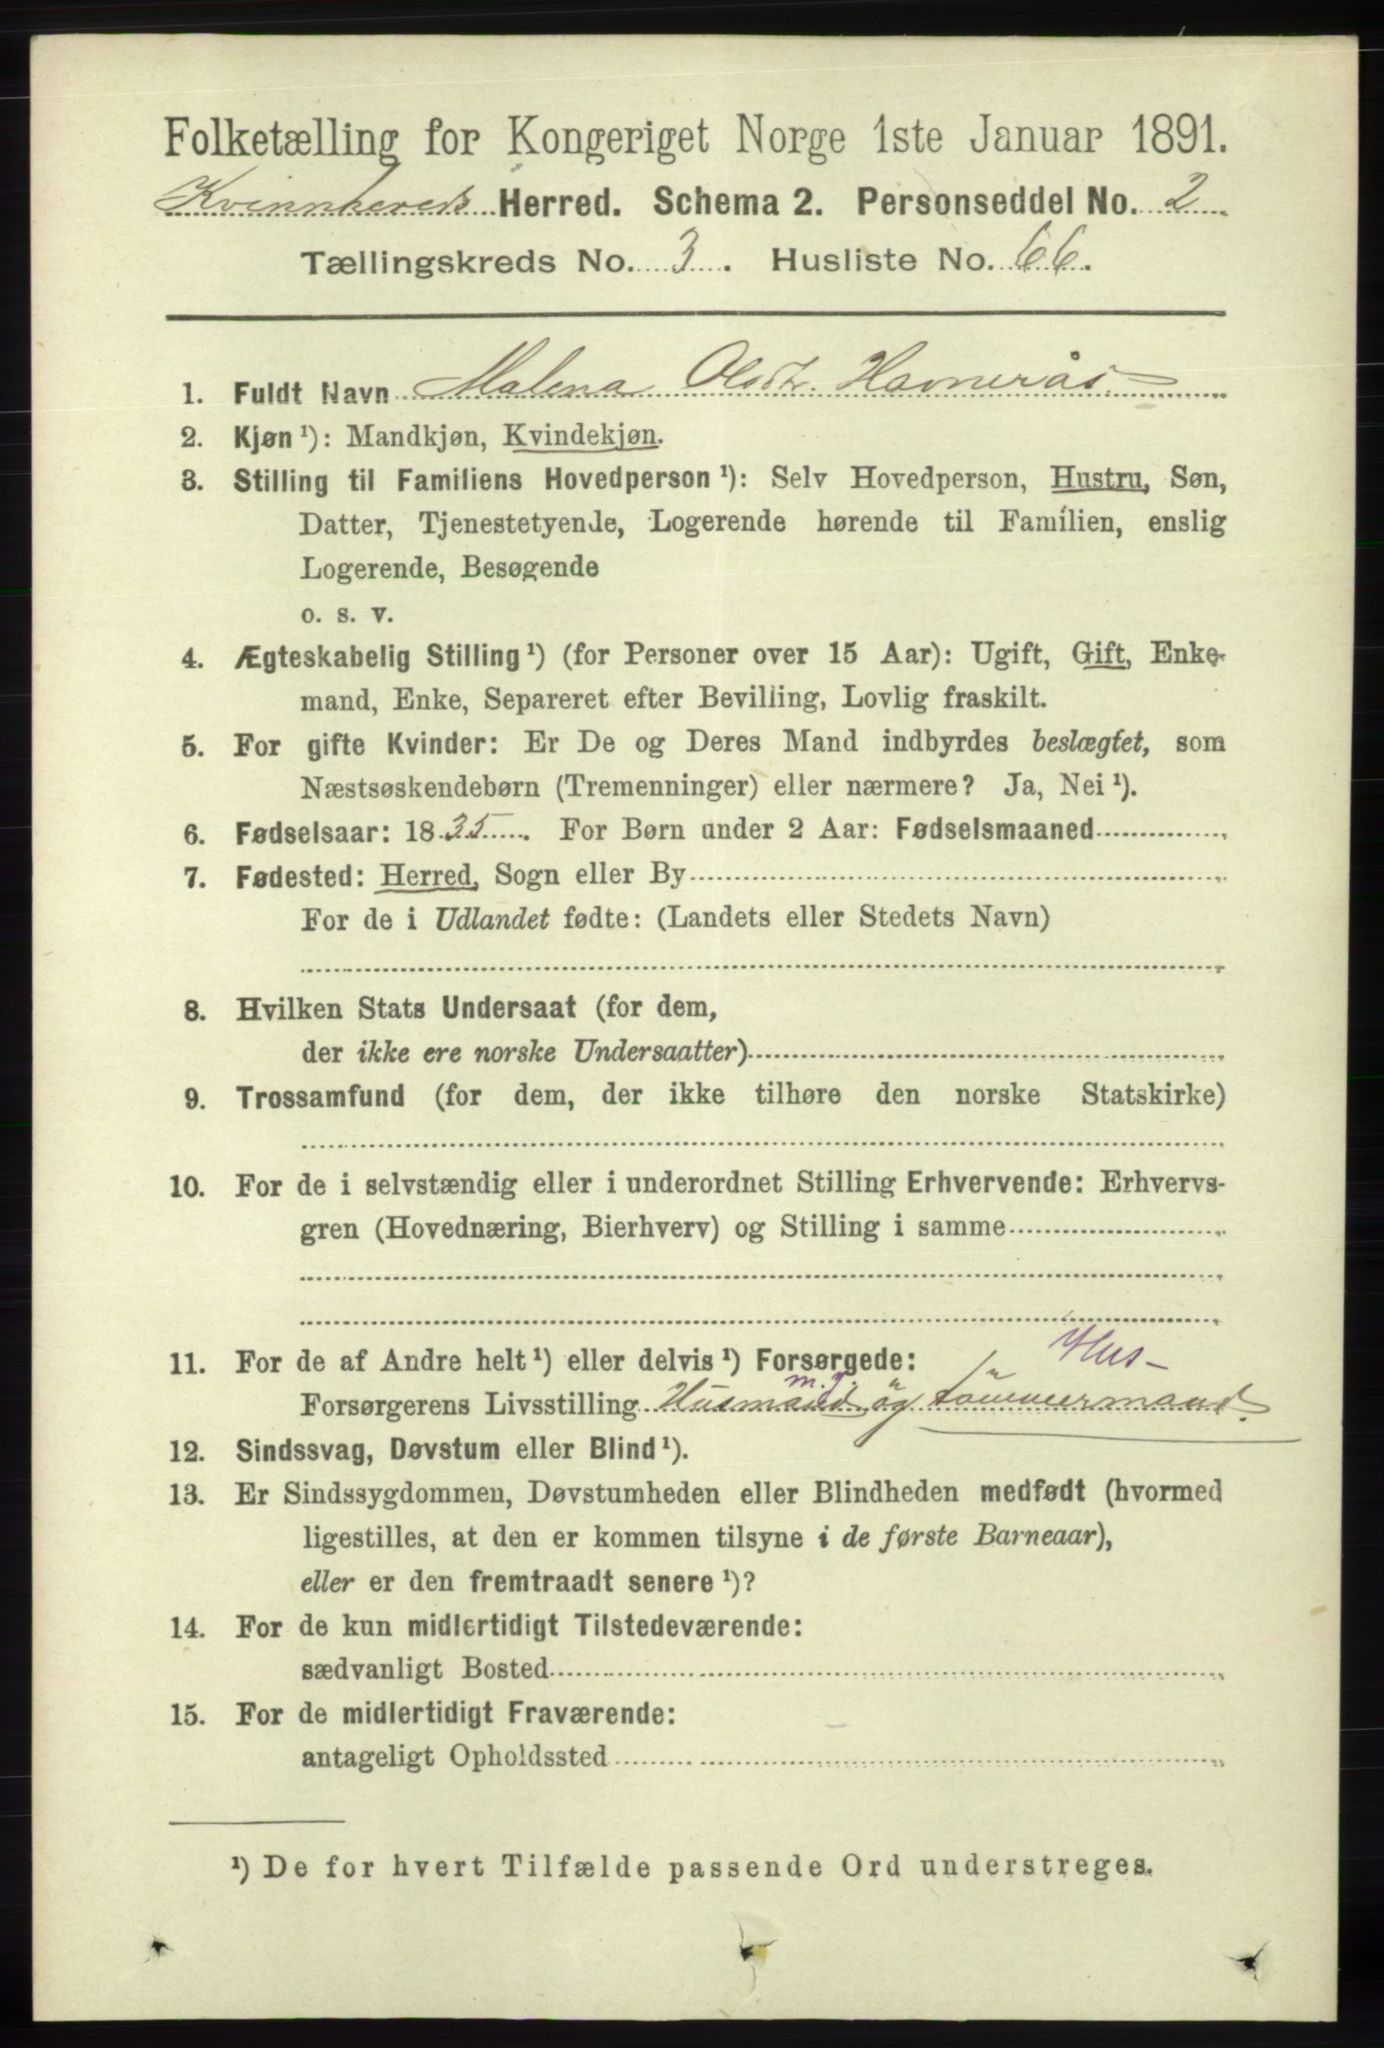 Folketælling for Kongeriget Norge 1ste Januar 1891.
Kvinnhereds Herred. Schema 2. Personseddel No. 2
Tællingskreds No. 3. Husliste No. 66.
1. Fuldt Navn Malena Olsdtr. Havnerås
2. Kjøn ¹): Mandkjøn, Kvindekjøn.
3. Stilling til Familiens Hovedperson ¹): Selv Hovedperson, Hustru, Søn,
Datter, Tjenestetyende, Logerende hørende til Familien, enslig
Logerende, Besøgende
o. s. v.
4. Ægteskabelig Stilling ¹) (for Personer over 15 Aar): Ugift, Gift, Enke-
mand, Enke, Separeret efter Bevilling, Lovlig fraskilt.
5. For gifte Kvinder: Er De og Deres Mand indbyrdes beslægtet, som
Næstsøskendebørn (Tremenninger) eller nærmere? Ja, Nei ¹).
6. Fødselsaar: 1835. For Børn under 2 Aar: Fødselsmaaned
7. Fødested: Herred, Sogn eller By
For de i Udlandet fødte: (Landets eller Stedets Navn)
8. Hvilken Stats Undersaat (for dem,
der ikke ere norske Undersaatter)
9. Trossamfund (for dem, der ikke tilhøre den norske Statskirke)
10. For de i selvstændig eller i underordnet Stilling Erhvervende: Erhvervs-
gren (Hovednæring, Bierhverv) og Stilling i samme
11. For de af Andre helt ¹) eller delvis ¹) Forsørgede:
Hus-
m. j.
Forsørgerens Livsstilling Husmand og tømmermand.
12. Sindssvag, Døvstum eller Blind ¹).
13. Er Sindssygdommen, Døvstumheden eller Blindheden medfødt (hvormed
ligestilles, at den er kommen tilsyne i de første Barneaar),
eller er den fremtraadt senere ¹)?
14. For de kun midlertidigt Tilstedeværende:
sædvanligt Bosted
15. For de midlertidigt Fraværende:
antageligt Opholdssted
¹) De for hvert Tilfælde passende Ord understreges.